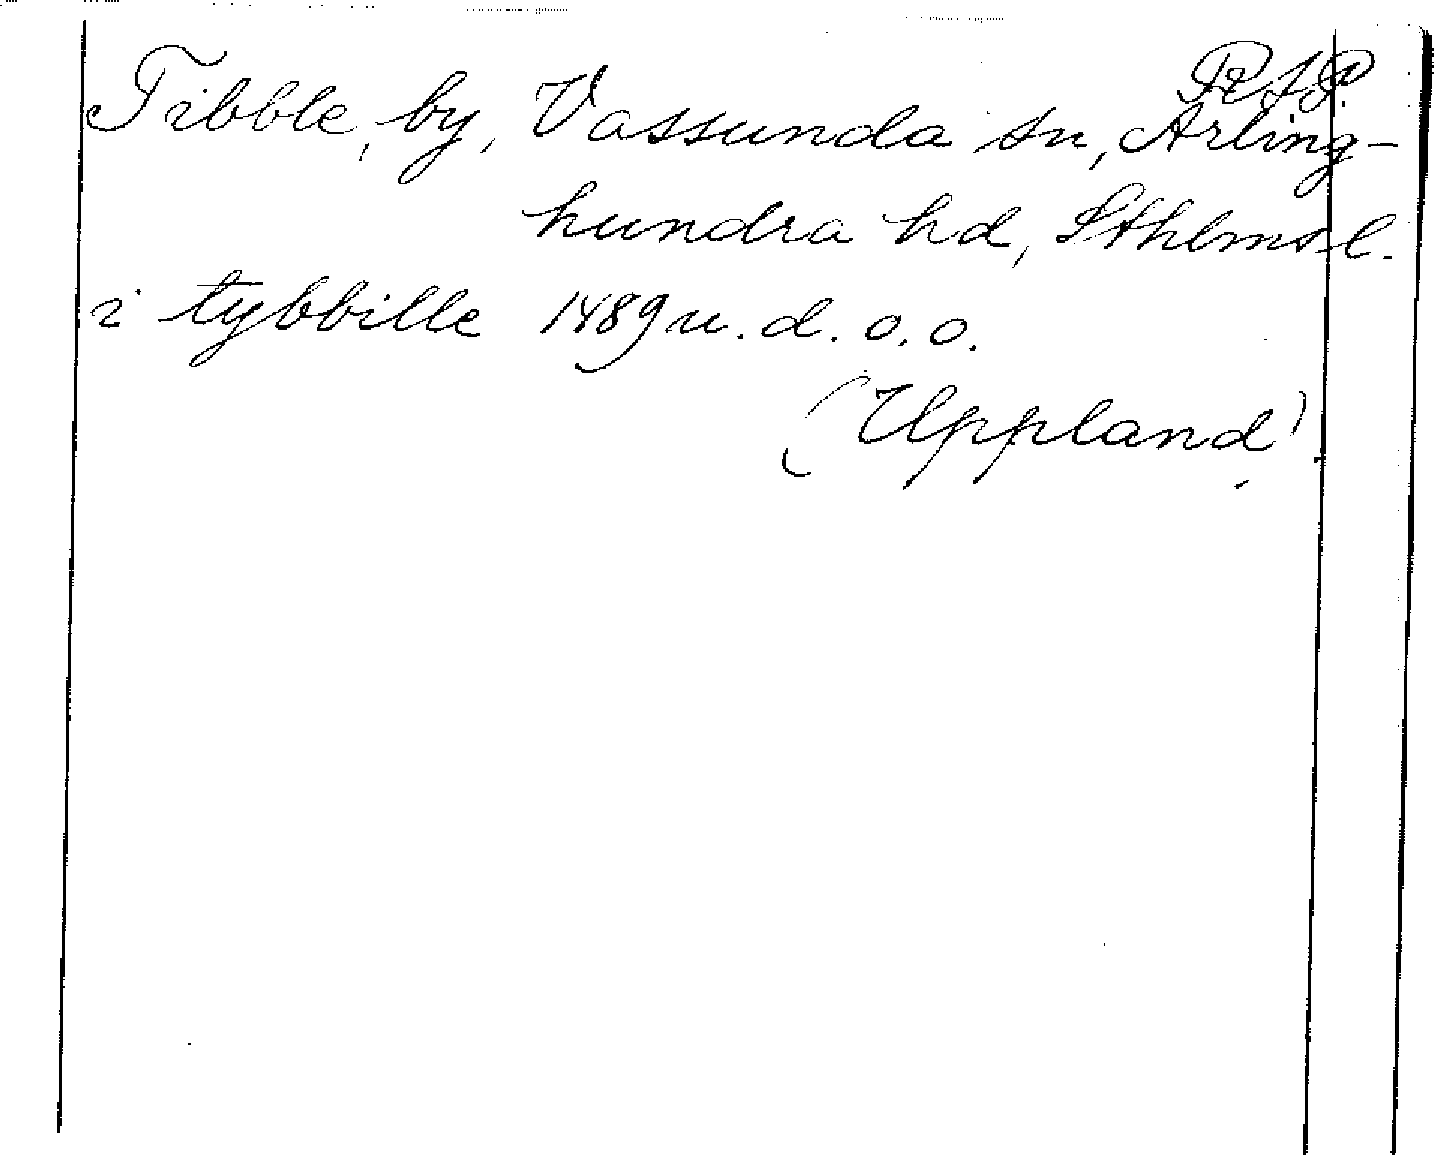 RAP.
Tibble, by, Vassunda sn, Arling-
hundra hd, Sthlms l.
i tybbille 1489 u. d. o. o.
(Uppland)